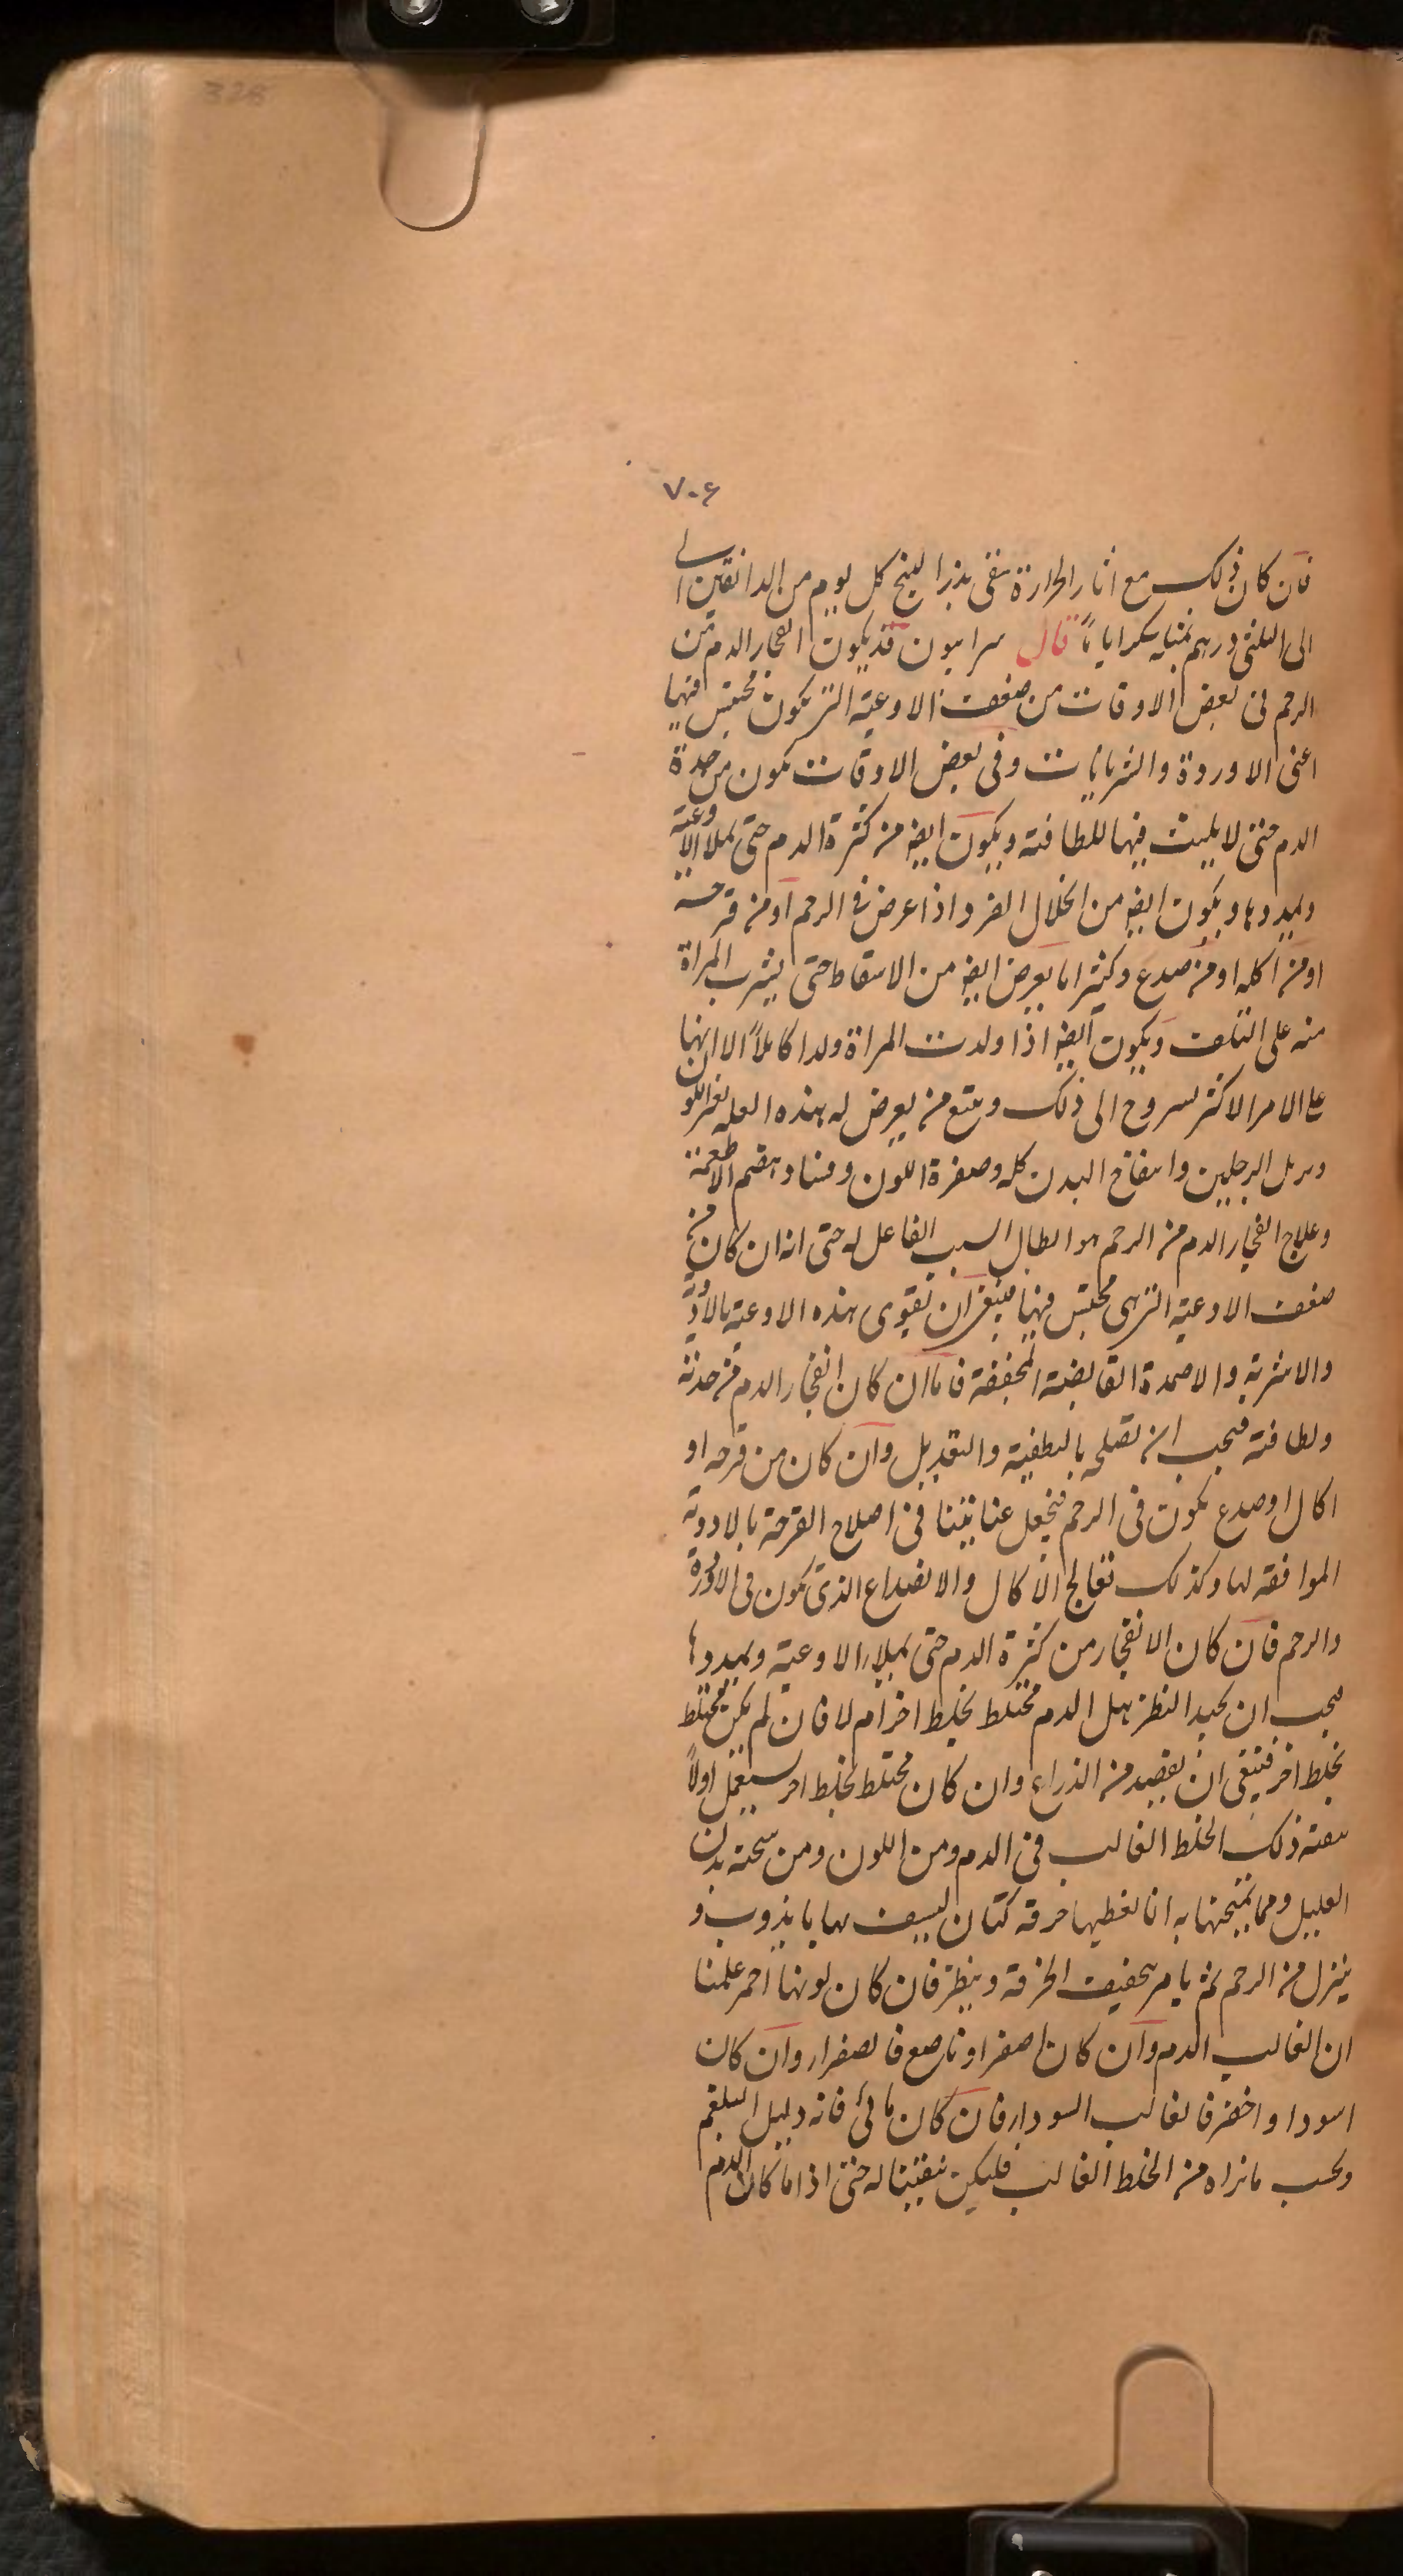 328
٧٠۶
فان كان ذلك مع اثار الحرارة يسقى بذر البنج كل يوم من الدانقين الى
الى الثلثى درهم بمثليه سكر اياما قال سرابيون قد يكون انفجار الدم من
الرحم فى بعض الاوقات من ضعف الاوعية التى يكون محتبس فيها
اعنى الاوردة والشريانات وفى بعض الاوقات يكون من حدة
الدم حتى لا يلبث فيها للطافته ويكون ايضا من كثرة الدم حتى يملا الاوعية
ويمددها ويكون ايضا من انحلال الفرد اذا عرض فى الرحم او من قرحة
او من اكله او من صدع وكثيرا ما يعرض ايضا من الاسقاط حتى يشرف المراة
منه على التلف ويكون ايضا اذا ولدت المراة ولدا كاملا الا انها
على الامر الاكثر تستروح الى ذلك ويتبع من يعرض له هذه العله تغير اللون
وترهل الرجلين وانتفاخ البدن كله وصفرة اللون وفساد هضم الاطعمة
وعلاج انفجار الدم من الرحم هو ابطال السبب الفاعل له حتى انه ان كان من
ضعف الاوعية التى هى محتبس فيها فينبغى ان تقوى هذه الاوعية بالادوية
والاشربة والاضمدة القابضة المجففة فاما ان كان انفجار الدم من حدته
ولطافته فيجب ان تصلحه بالتطفية والتعديل وان كان من قرحه او
اكال او صدع يكون فى الرحم فنجعل عنايتنا فى اصلاح القرحة بالادوية
الموافقه لها وكذلك نعالج الاكال والانصداع الذى يكون فى الاوردة
والرحم فان كان الانفجار من كثرة الدم حتى يملا الاوعية ويمددها
فيجب ان يجيد النظر هل الدم مختلط بخلط اخر ام لا فان لم يكن مختلط
بخلط اخر فينبغى ان يفصد من الذراع وان كان مختلط بخلط اخر يستعمل اولا
تنقية ذلك الخلط الغالب فى الدم ومن اللون ومن سحنة بدن
العليل ومما يمتحنها به انا نعطيها خرقه كتان ليسيف بها ما يذوب و
ينزل من الرحم ثم يامر بتجفيف الخرقة وينظر فان كان لونها احمر علمنا
ان الغالب الدم وان كان اصفر او ناصع فالصفرار وان كان
اسود او اخضر فالغالب السودا فان كان مائى فانه دليل البلغم
وبحسب ما نراه من الخلط الغالب فليكن تنقيتنا له حتى اذا ما كان الدم